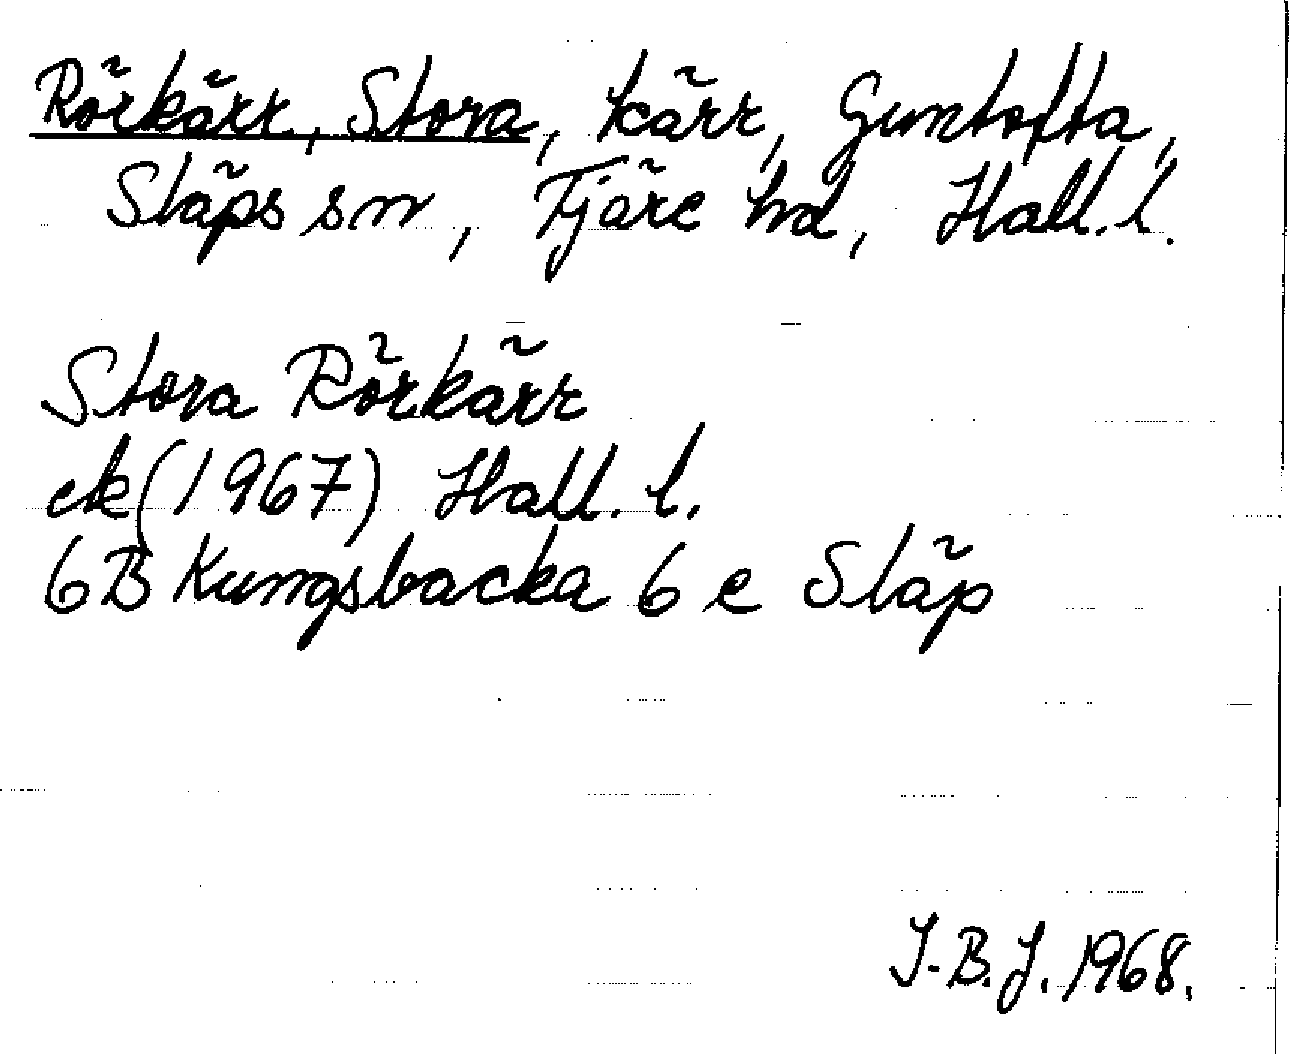 Rörkärr, Stora, kärr, Guntofta,
Släps sn, Fjäre hd, Hall. l.
Stora Rörkärr
ek (1967) Hall. l.
6B Kungsbacka 6 e Släp
I.B.J. 1968.